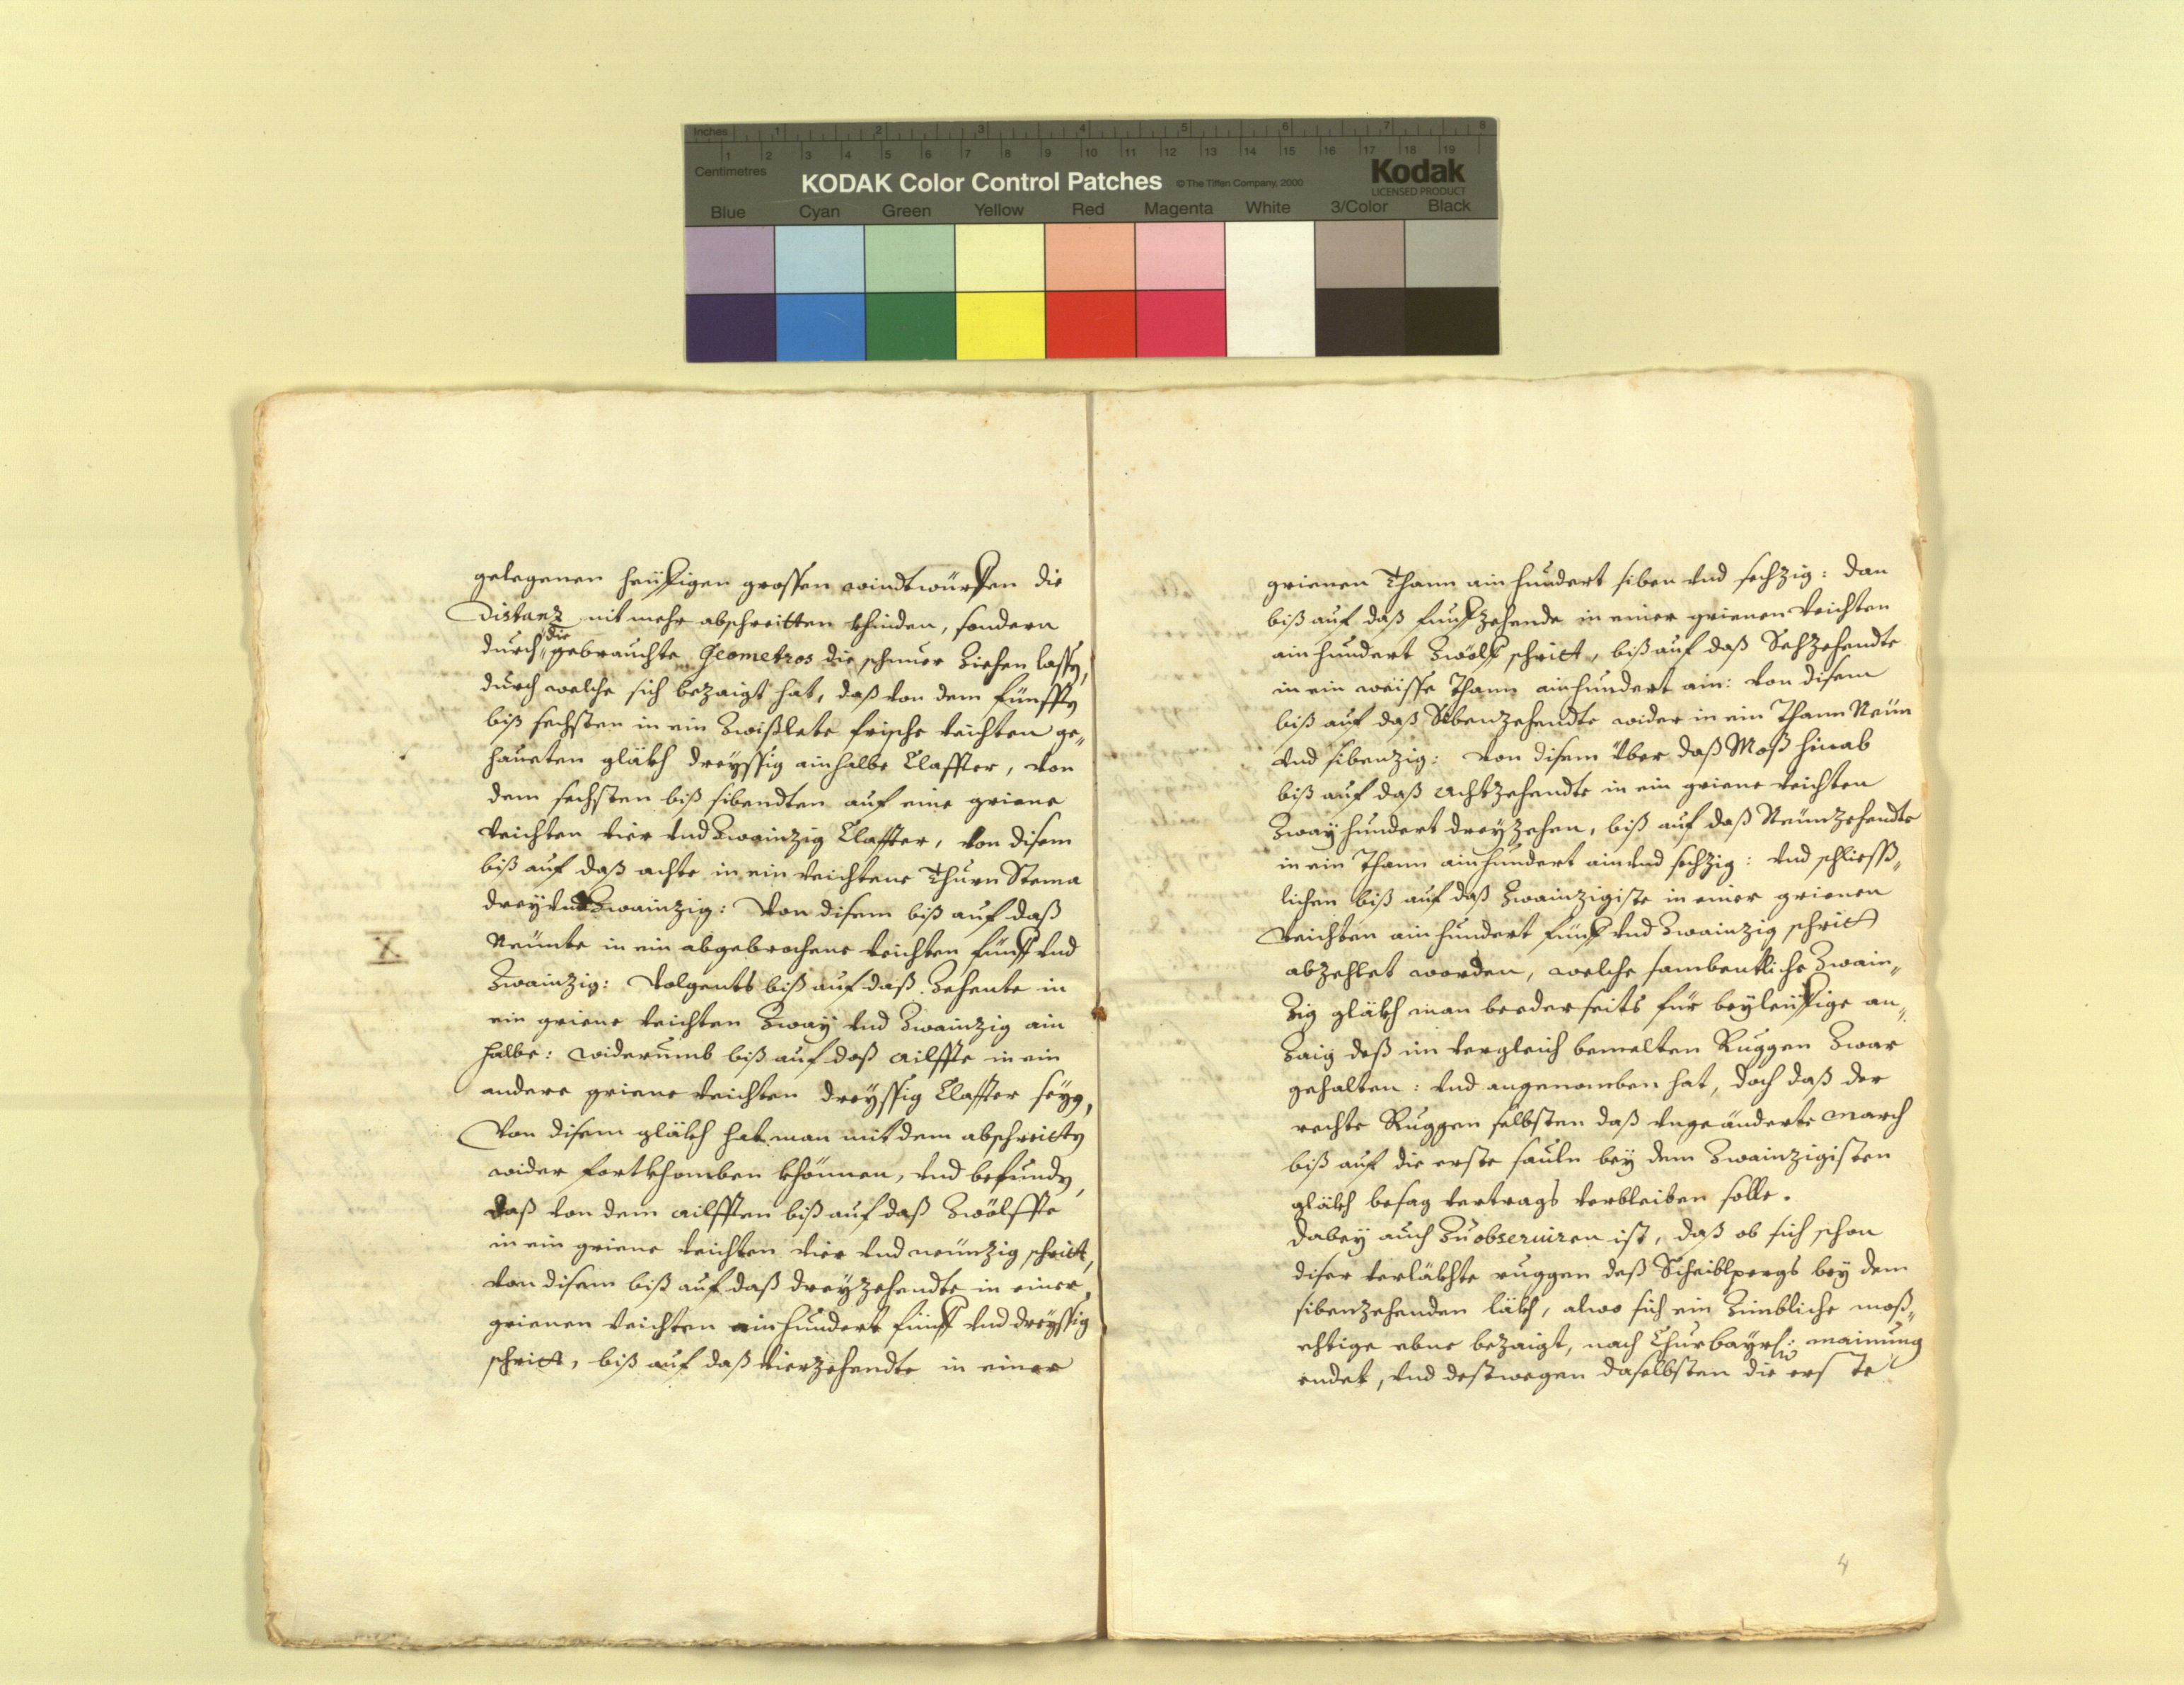 Inches 1 2 3 4 5 6 7 8
1 2 3 4 5 6 7 8 9 10 11 12 13 14 15 16 17 18 19
Centimetres
KODAK Color Control Patches © The Tiffen Company, 2000 Kodak
LICENSED PRODUCT
Blue Cyan Green Yellow Red Magenta White 3/Color Black
gelegenen heüffigen grossen windtwürffen die
Distanz nit mehr abschreitten khinden, sondern
die
durch gebrauchte Geometros die schnuer ziehen lassen,
durch welche sich bezaigt hat, daß von dem fünfften
biß sechsten in ein zwißlete frische veichten ge„
haueten gläkh dreyssig ainhalbe Claffter, von
dem sechsten biß sibendten auf eine griene
veichten vier vnd zwainzig Claffter, von disem
biß auf daß achte in ein veichtene Thurn Stema
drey vnd zwainzig: Von disem biß auf daß
X
Neünte in ein abgebrochene veichten fünff vnd
zwainzig: Volgents biß auf daß zehente in
ein griene veichten zway vnd zwainzig ain
halbe: widerumb biß auf daß ailffte in ein
andere griene veichten dreyssig Claffter seyen,
Von disem gläkh hat man mit dem abschreitten
wider fortkhomben khönnen, vnd befunden,
daß von dem ailfften biß auf daß zwölffte
in ein griene veichten vier vnd neünzig schritt,
von disem biß auf daß dreyzehendte in einer
grienen veichten ainhundert fünff vnd dreyssig
schritt, biß auf daß vierzehendte in einer
grienen Thann ain hundert siben vnd sechzig: dan
biß auf daß funffzehende in einer grienen veichten
ain hundert zwölff schritt, biß auf daß Sechzehendte
in ein weisse Thann ainhundert ain: von disem
biß auf daß Sibenzehendte wider in ein Thann Neün
vnd sibenzig: Von disem über daß Moß hinab
biß auf daß Achtzehendte in ein griene veichten
zway hundert dreyzehen, biß auf daß Neünzehendte
in ein Thann ainhundert ain vnd sechzig: vnd schließ„
lichen biß auf daß zwainzigiste in einer grienen
veichten ain hundert fünff vnd zwainzig schritt
abzehlet worden, welche sambentliche zwain„
zig gläkh man beederseits für beyleyffige an„
zaig deß im vergleich bemelten Ruggen zwar
gehalten: vnd angenomben hat, doch daß der
rechte Ruggen selbsten daß vngeänderte March
biß auf die erste sauln bey dem zwainzigisten
gläkh besag vertrags verbleiben solle.
dabey auch zu obseruiren ist, daß ob sich schon
diser verläkhte ruggen deß Scheiblpergs bey dem
sibenzehenden läkh, alwo sich ein zimbliche moß„
echtige ebne bezaigt, nach Churbayrs: mainung
endet, vnd destwegen daselbsten die erste
4